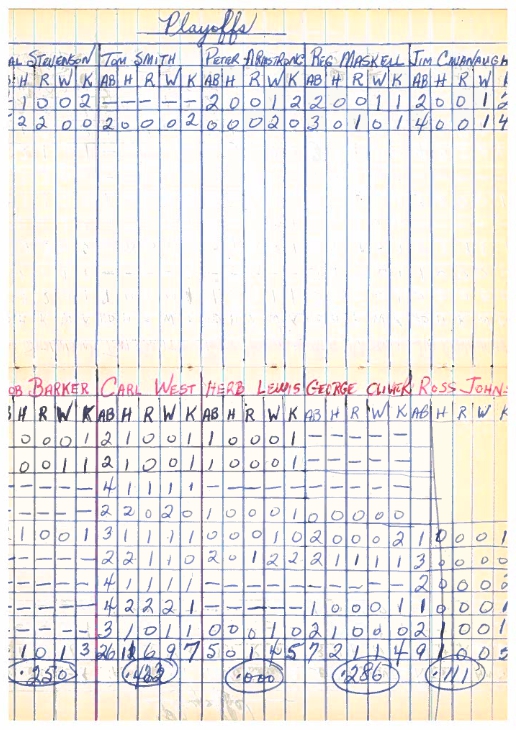 Playoffs
AL STEVENSON TOM SMITH PETER ARMSTRONG REG MASKELL JIM CAVANAUGH
H R W K AB H R W K AB H R W K AB H R W K AB H R W
1 0 0 2 - - - - - 2 0 0 1 2 2 0 0 1 1 2 0 0 1 2
2 2 0 0 2 0 0 0 2 0 0 0 2 0 3 0 1 0 1 4 0 0 1 4
OB BARKER CARL WEST HERB LEWIS GEORGE OLIVER ROSS JOHNS
H R W K AB H R W K AB H R W K AB H R W K AB H R W K
0 0 0 1 2 1 0 0 1 1 0 0 0 1 - - - - -
0 0 1 1 2 1 0 0 1 1 0 0 0 1 - - - - -
- - - - 4 1 1 1 1 - - - - - - - - - -
- - - - 2 2 0 2 0 1 0 0 0 1 0 0 0 0 0
1 0 0 1 3 1 1 1 1 0 0 0 1 0 2 0 0 0 2 1 0 0 0 1
- - - - 2 2 1 1 0 2 0 1 2 2 2 1 1 1 1 3 0 0 0 0
- - - - 4 1 1 1 1 - - - - - - - - - - 2 0 0 0 0
- - - - 4 2 2 2 1 - - - - - 1 0 0 0 1 1 0 0 0 1
- - - - 3 1 0 1 1 0 0 0 1 0 2 1 0 0 0 2 1 0 0 1
1 0 1 3 26 9 7 5 0 1 4 5 7 2 1 1 4 9 1 0 0
.250 .000 .286 .111